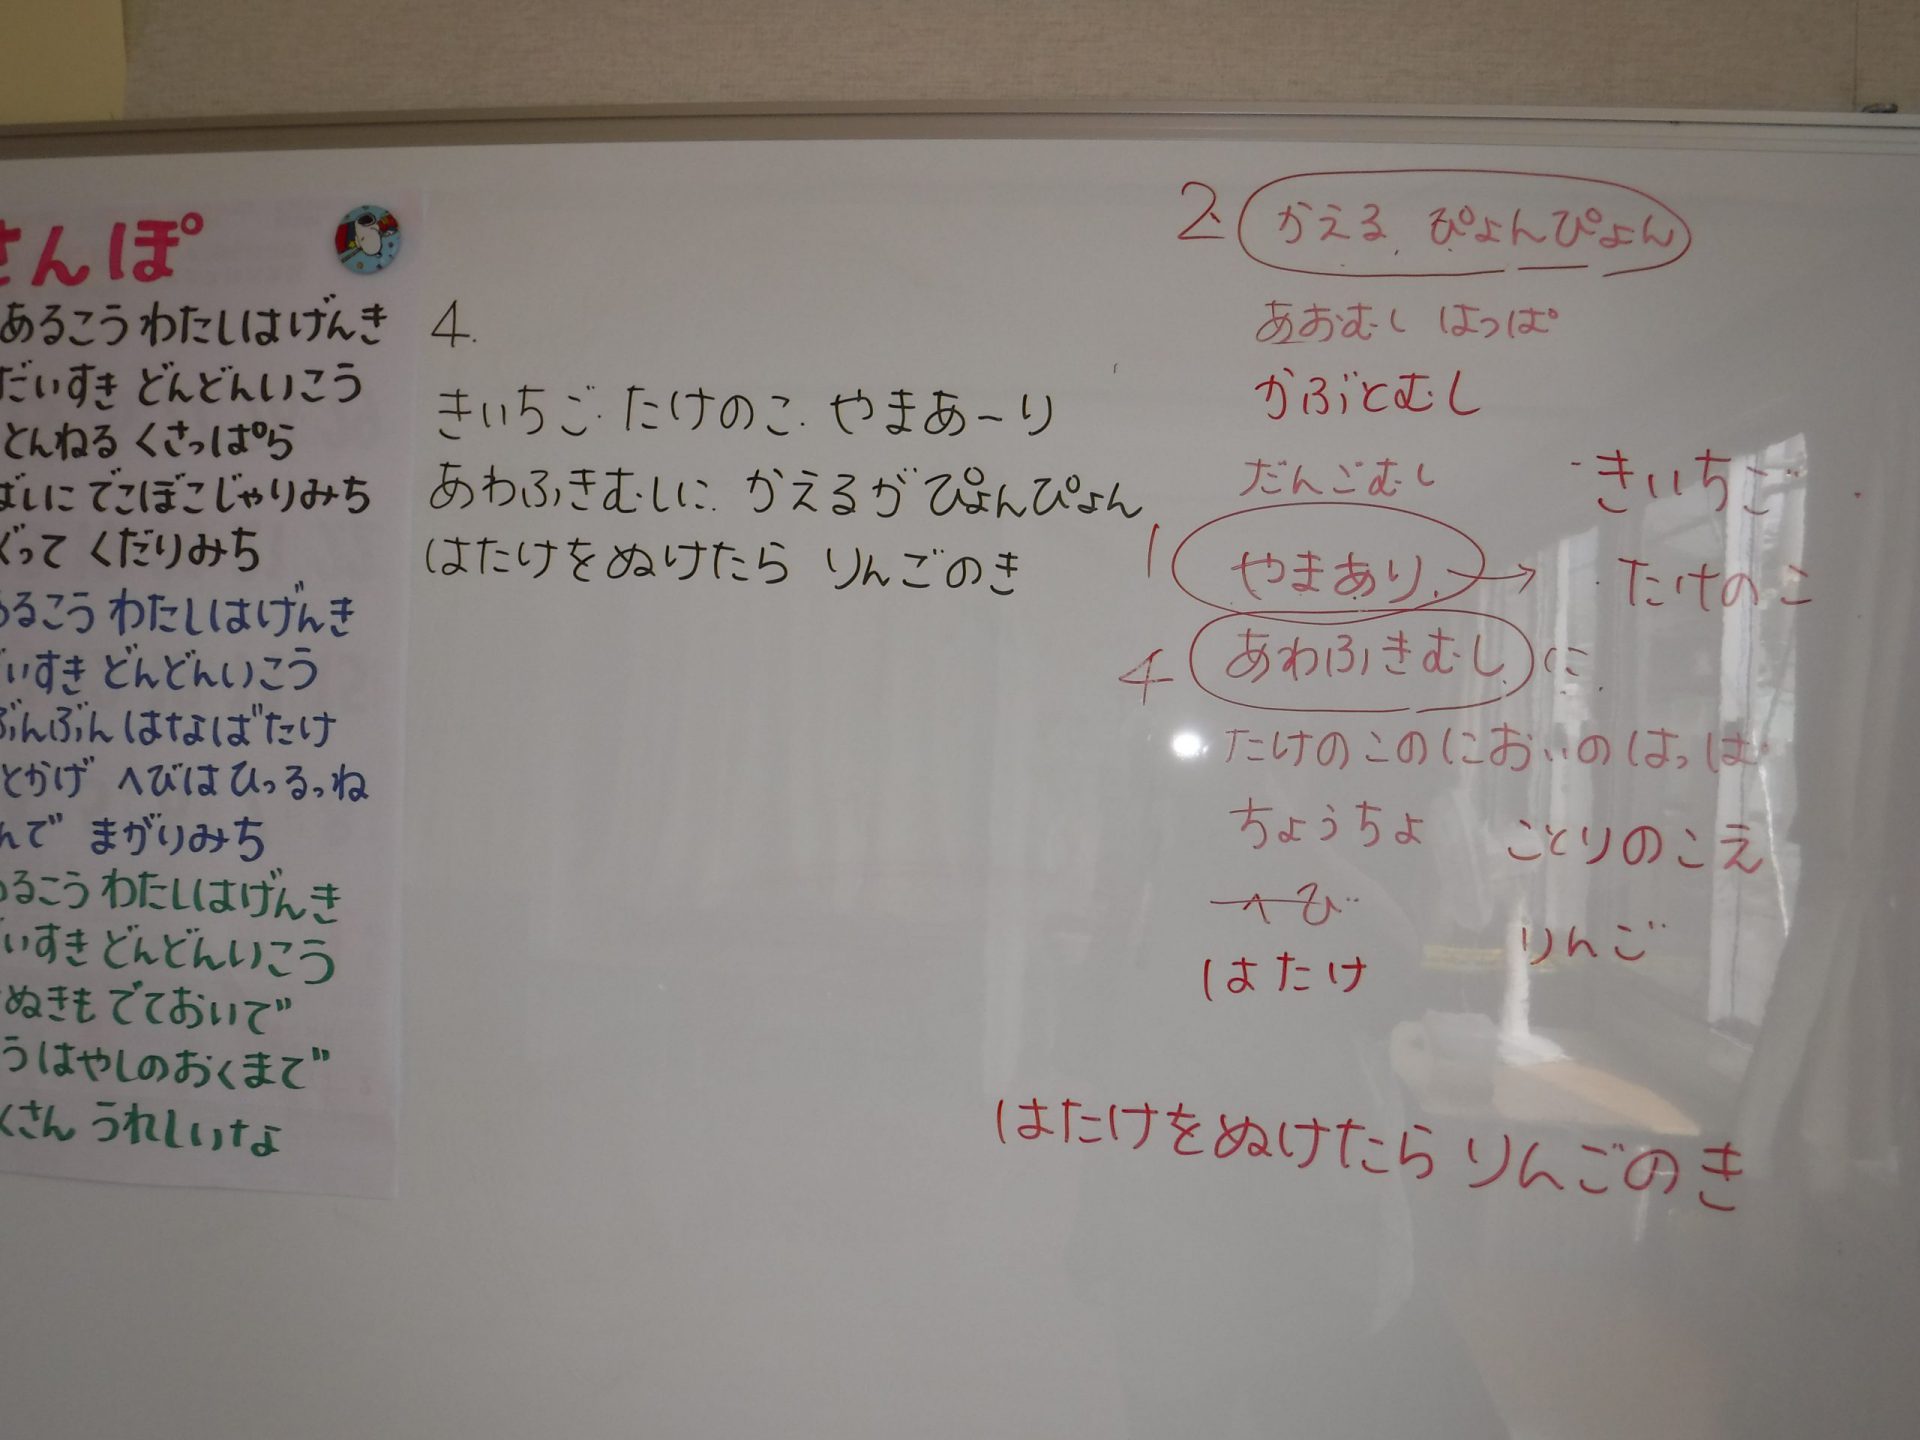 さんぽ
あるこう わたしはげんき
だいすき どんどんいこう
とんねる くさっぱら
ばしに でこぼこじゃりみち
ぐって くだりみち
あるこう わたしはげんき
いすき どんどんいこう
ぶんぶん はなばたけ
とかげ へびは ひっるっね
んで まがりみち
るこう わたしはげんき
いすき どんどんいこう
ぬきも でておいで
う はやしのおくまで
くさん うれしいな
4.
きいちご たけのこ やまあーり
あわふきむしに かえるがぴょんぴょん
はたけをぬけたら りんごのき
2 かえる ぴょんぴょん
あおむし はっぱ
かぶとむし
だんごむし
1 やまあり →
きいちご
たけのこ
4 あわふきむしに
たけのこのにおいのはっは
ちょうちょ
へび
はたけ
ことりのこえ
りんご
はたけをぬけたら りんごのき